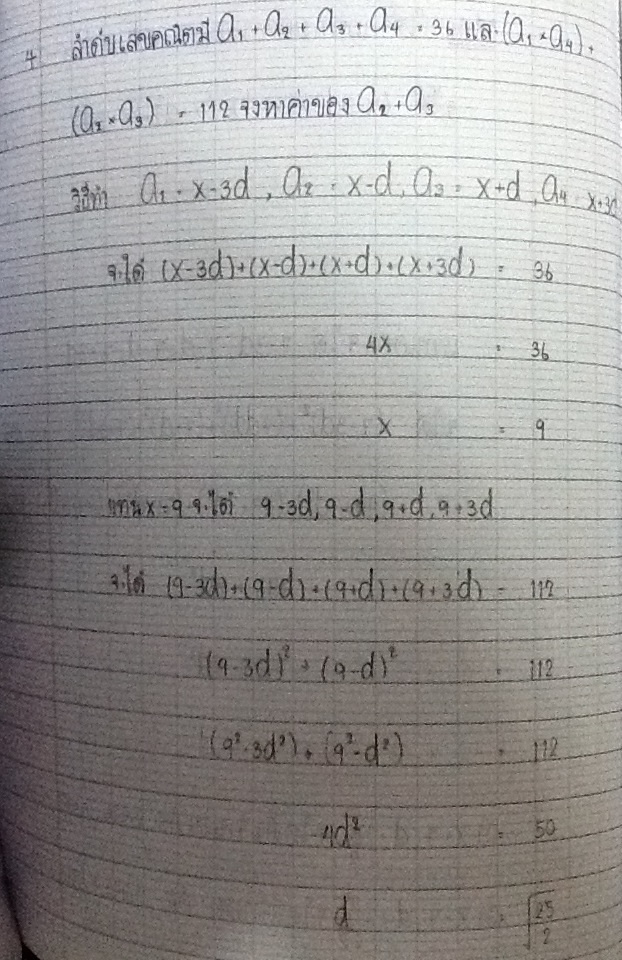 4 ลำดับเลขคณิตมี a₁ + a₂ + a₃ + a₄ = 36 และ (a₁ × a₄) +
(a₂ × a₃) = 112 จงหาค่าของ a₂ + a₃
วิธีทำ a₁ = x-3d , a₂ = x-d , a₃ = x+d , a₄ = x+3d
จะได้ (x-3d)+(x-d)+(x+d)+(x+3d) = 36
4x = 36
x = 9
แทน x = 9 จะได้ 9-3d, 9-d, 9+d, 9+3d
จะได้ (9-3d)+(9-d)+(9+d)+(9+3d) = 112
(9-3d)² + (9-d)² = 112
(9²-3d²) + (9²-d²) = 112
4d² = 50
d = √25/2